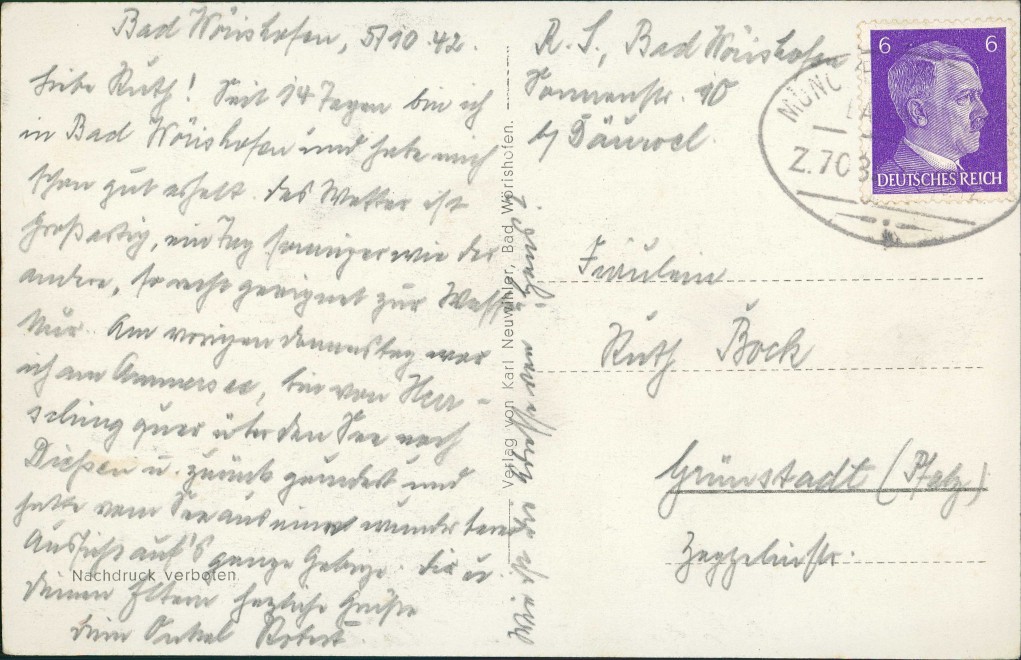 Bad Wörishofen, 5/10.42.
Liebe Ruth! Seit 14 Tagen bin ich
in Bad Wörishofen und habe mich
schon gut erholt. Das Wetter ist
großartig, ein Tag sonniger wie der
andere, so recht geeignet zur Wasser-
kur. Am vorigen Donnerstag war
ich am Ammersee, bin von Herr-
sching quer über den See nach
Dießen u. zurück gerudert und
hatte vom See aus einen wunderbaren
Aussicht auf's ganze Gebirge. Dir u.
deinen Eltern herzliche Grüße
dein Onkel Robert.
Nachdruck verboten
Verlag von Karl Neuwihler, Bad Wörishofen.
Wie ist die Adresse von
R. S., Bad Wörishofen
Sonnenstr. 10
b/
MÜNC
Z.703
6 6
DEUTSCHES REICH
Fräulein
Ruth Bock
Grünstadt (Pfalz)
Zeppelinstr.